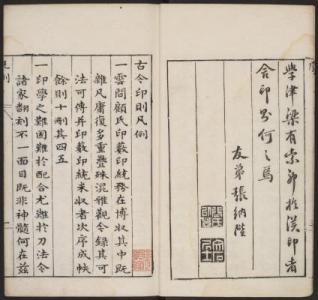 學津梁有於漢印者
舍印則何之焉
友弟張納陛
古今印則凡例
一雲間顧氏印藪印統務在博收其中既
雜凡庸復多重疊殊混雅觀今錄其可
法可傳并印藪印統未收者次序成帙
餘則十刪其四五
一印學之難固難於配合尤難於刀法今
諸家翻刻不一面目既非神髓何在茲